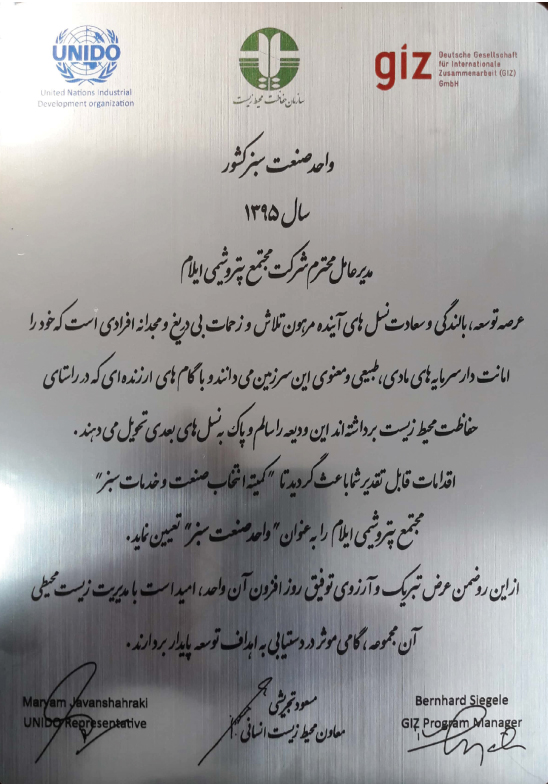 UNIDO
United Nations Industrial
Development organization
سازمان حفاظت محیط زیست
giz
Deutsche Gesellschaft
für Internationale
Zusammenarbeit (GIZ)
GmbH
واحد صنعت سبز کشور
سال ۱۳۹۵
مدیر عامل محترم شرکت مجتمع پتروشیمی ایلام
عرصه توسعه، بالندگی و سعادت نسل های آینده مرهون تلاش و زحمات بی دریغ و مجدانه افرادی است که خود را
امانت دار سرمایه های مادی، طبیعی و معنوی این سرزمین می دانند و با گام های ارزنده ای که در راستای
حفاظت محیط زیست برداشته اند این ودیعه را سالم و پاک به نسل های بعدی تحویل می دهند .
اقدامات قابل تقدیر شما باعث گردید تا "کمیته انتخاب صنعت و خدمات سبز"
مجتمع پتروشیمی ایلام را به عنوان "واحد صنعت سبز" تعیین نماید.
از این رو ضمن عرض تبریک و آرزوی توفیق روز افزون آن واحد، امید است با مدیریت زیست محیطی
آن مجموعه ، گامی موثر در دستیابی به اهداف توسعه پایدار بردارند .
Maryam Javanshahraki
UNIDO Representative
مسعود تجریشی
معاون محیط زیست انسانی
Bernhard Siegele
GIZ Program Manager